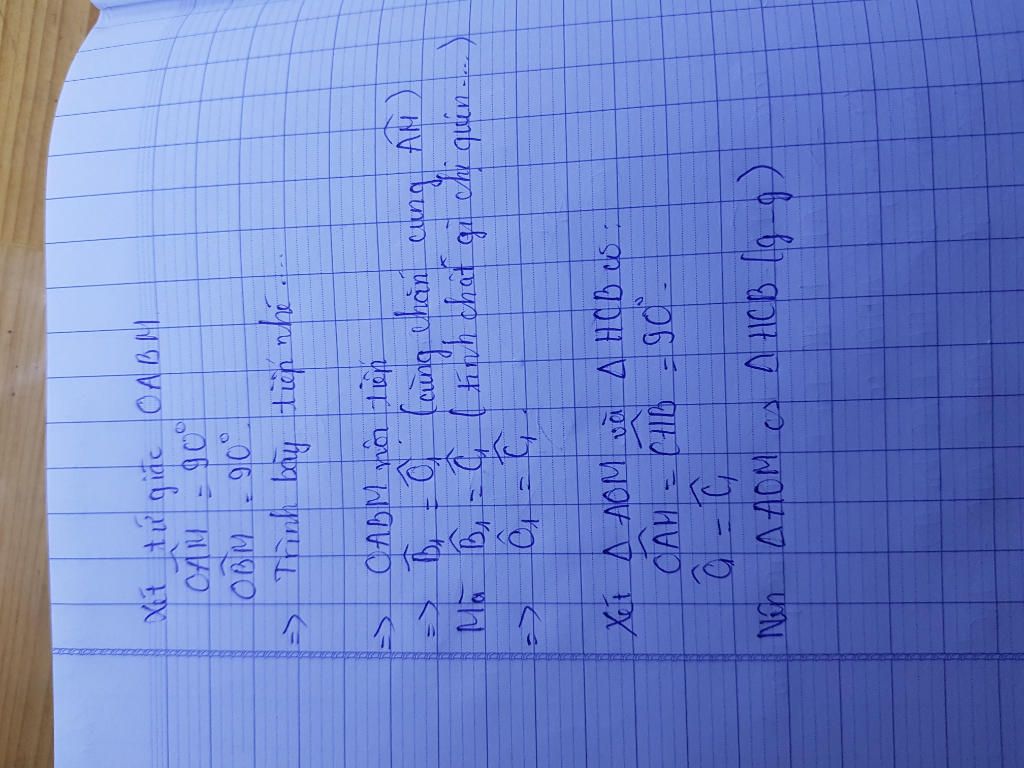 Xét tứ giác OABM
OÂM = 90°
OB̂M = 90°.
=> Trình bày tiếp nhé....
=> OABM nội tiếp
=> B̂₁ = Ô₁ (cùng chắn cung AM)
Mà B̂₁ = Ĉ₁ (tính chất gì chị quên....)
=> Ô₁ = Ĉ₁.
Xét Δ AOM và Δ HCB có:
OÂM = CĤB = 90°.
Ô₁ = Ĉ₁
Nên Δ AOM ∽ Δ HCB (g-g)